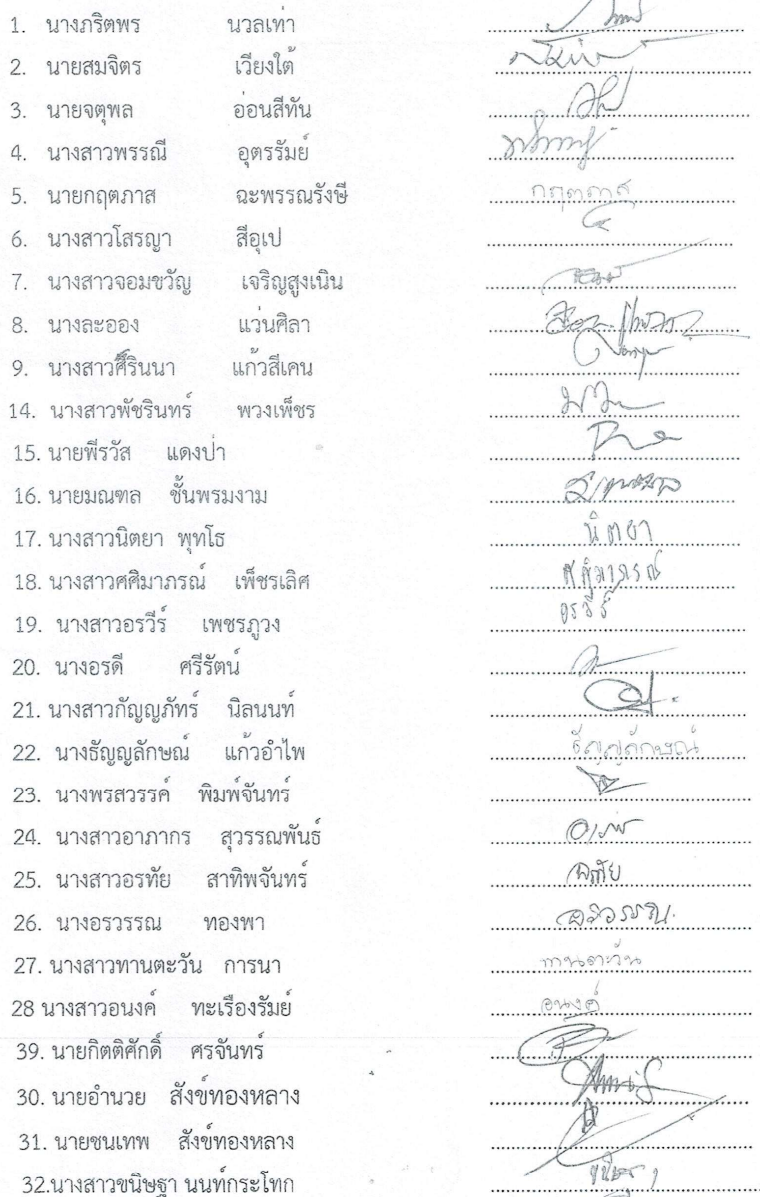 1. นางภริตพร นวลเท่า
2. นายสมจิตร เวียงใต้
3. นายจตุพล อ่อนสีทัน
4. นางสาวพรรณี อุตรรัมย์
5. นายกฤตภาส ฉะพรรณรังษี กฤตภาส
6. นางสาวโสรญา สีอุเป
7. นางสาวจอมขวัญ เจริญสูงเนิน
8. นางละออง แว่นศิลา
9. นางสาวศิรินนา แก้วสีเคน
14. นางสาวพัชรินทร์ พวงเพ็ชร
15. นายพีรวัส แดงป่า
16. นายมณฑล ชั้นพรมงาม
17. นางสาวนิตยา พุทโธ นิตยา
18. นางสาวศศิมาภรณ์ เพ็ชรเลิศ ศศิมาภรณ์
19. นางสาวอรวีร์ เพชรภูวง อรวีร์
20. นางอรดี ศรีรัตน์
21. นางสาวกัญญภัทร์ นิลนนท์
22. นางธัญญลักษณ์ แก้วอำไพ ธัญญลักษณ์
23. นางพรสวรรค์ พิมพ์จันทร์
24. นางสาวอาภากร สุวรรณพันธ์
25. นางสาวอรทัย สาทิพจันทร์ อรทัย
26. นางอรวรรณ ทองพา อรวรรณ
27. นางสาวทานตะวัน การนา ทานตะวัน
28 นางสาวอนงค์ ทะเรืองรัมย์ อนงค์
39. นายกิตติศักดิ์ ศรจันทร์
30. นายอำนวย สังข์ทองหลาง
31. นายชนเทพ สังข์ทองหลาง
32.นางสาวขนิษฐา นนท์กระโทก